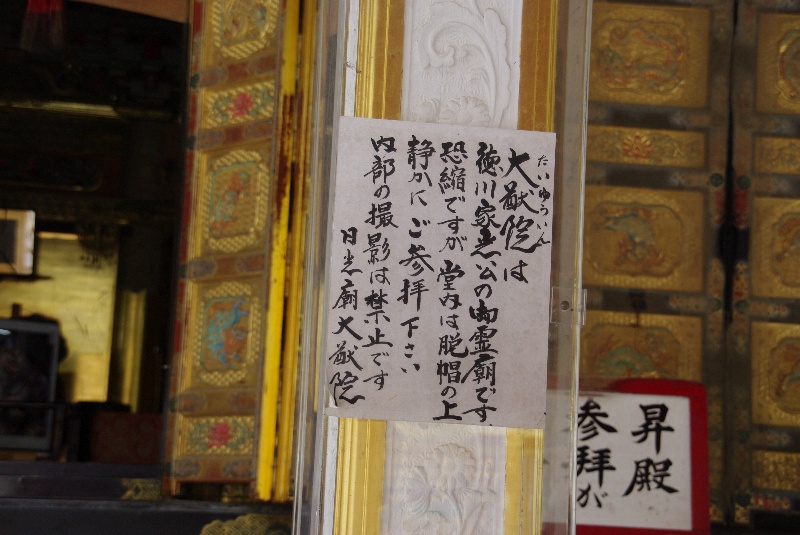 大猷院は
たいゆういん
徳川家光公の御霊廟です
恐縮ですが 堂内は脱帽の上
静かに ご参拝下さい
内部の撮影は禁止です
日光廟大猷院
昇殿
参拝が